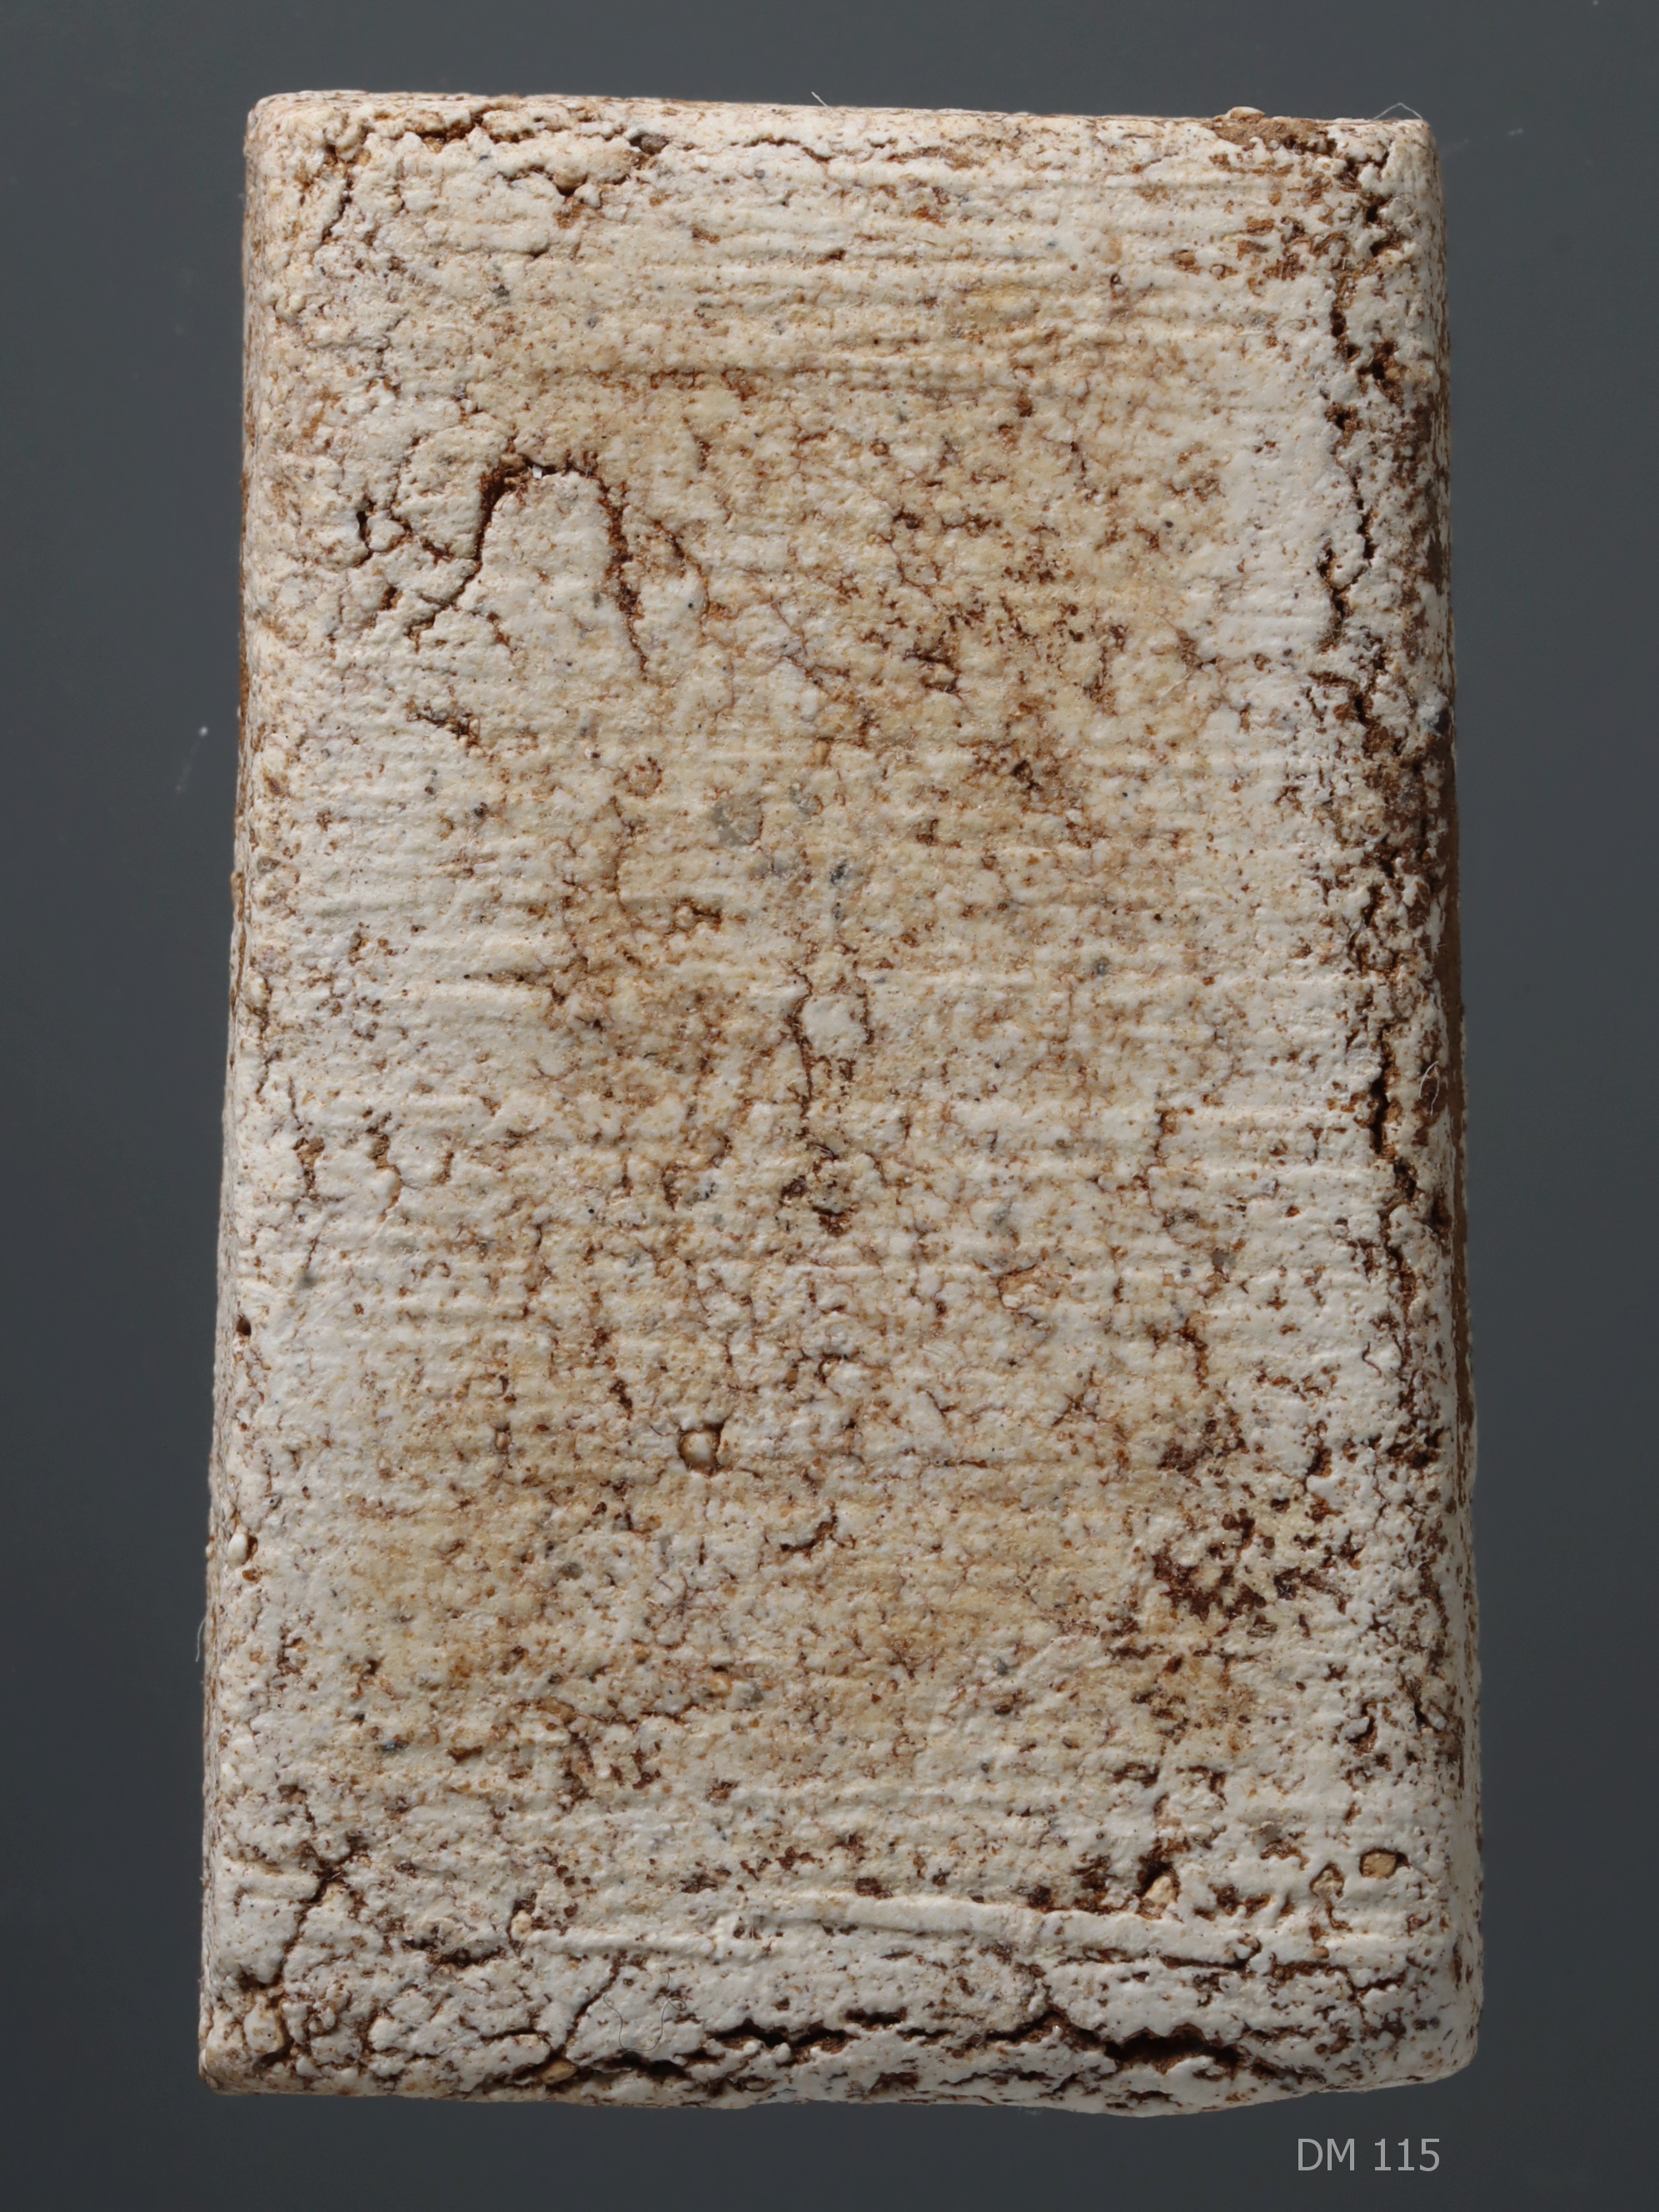 DM 115